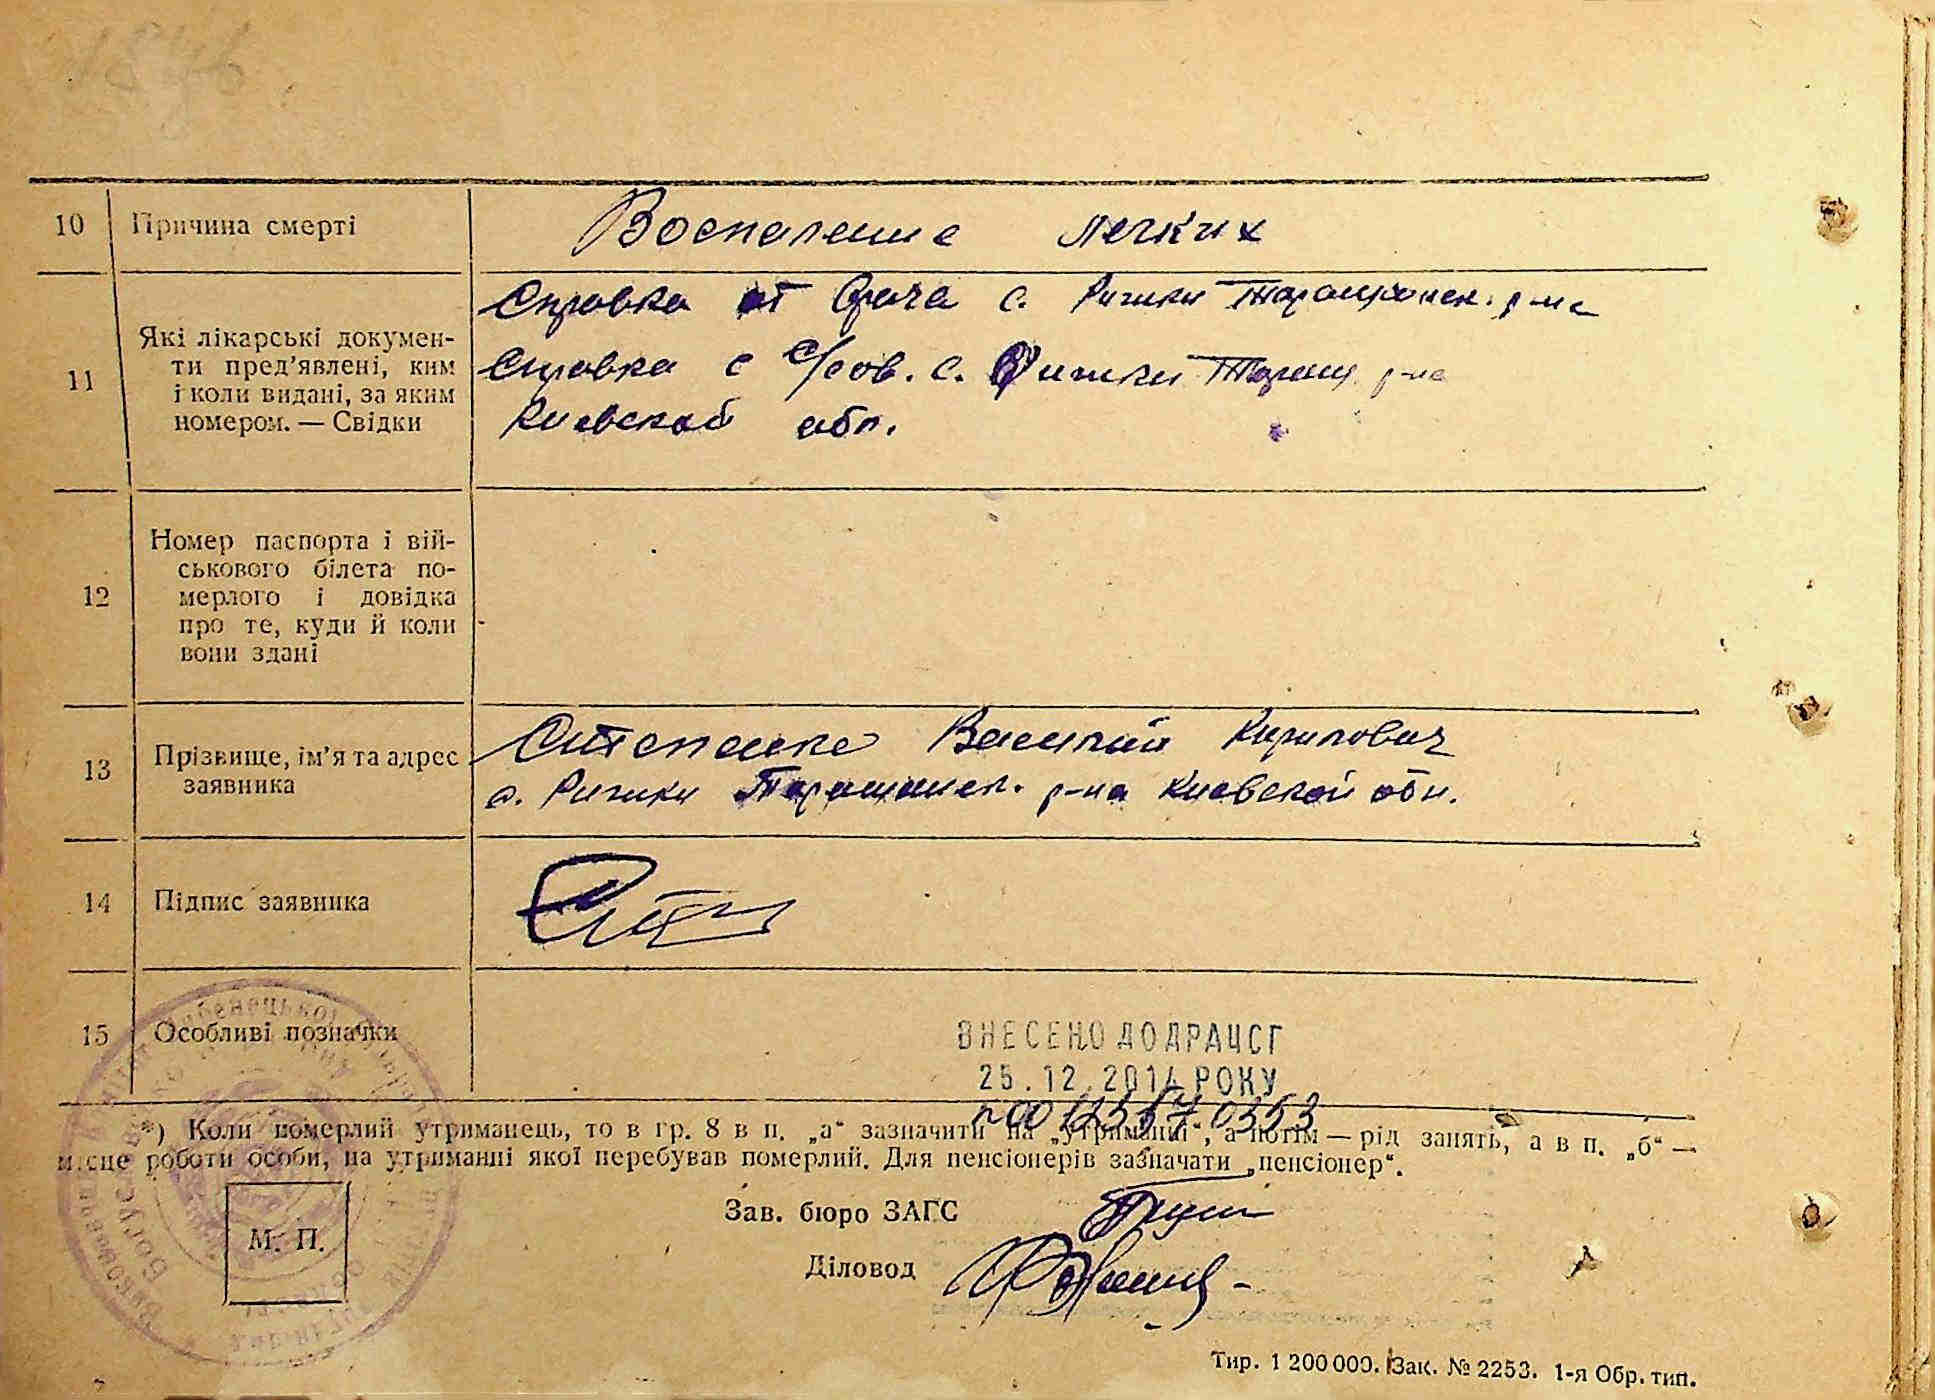 10 Причина смерти Воспаление легких
Справка от врача с. Рижки Таращанск. р-на
11 Які лікарські докумен-
ти пред’явлені, ким
і коли видані, за яким
номером. — Свідки
Справка с с/сов. с. Рижки Таращ. р-на
Киевской обл.
12 Номер паспорта і вій-
ськового білета по-
мерлого і довідка
про те, куди й коли
вони здані
13 Прізвище, ім’я та адрес
заявника
Степанко Василий Кирилович
с. Рижки Таращанск. р-на Киевской обл.
14 Підпис заявника
15 Особливі позначки
ВНЕСЕНО ДО ДРАЦСГ
25.12.2014 РОКУ
*) Коли померлий утриманець, то в гр. 8 в п. „а“ зазначити на „утриманні“, а потім — рід занять, а в п. „б“ —
місце роботи особи, на утриманні якої перебував померлий. Для пенсіонерів зазначати „пенсіонер“.
Зав. бюро ЗАГС
М. П.
Діловод
Тир. 1 200 000. Зак. № 2253. 1-я Обр. тип.